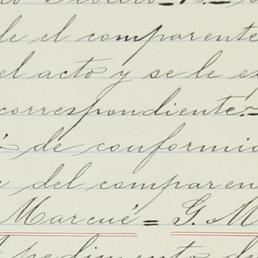 de el comparente
el acto y se le es
correspondiente.-
s de conformid
del comparen
Marcué = G. M
pedimento de